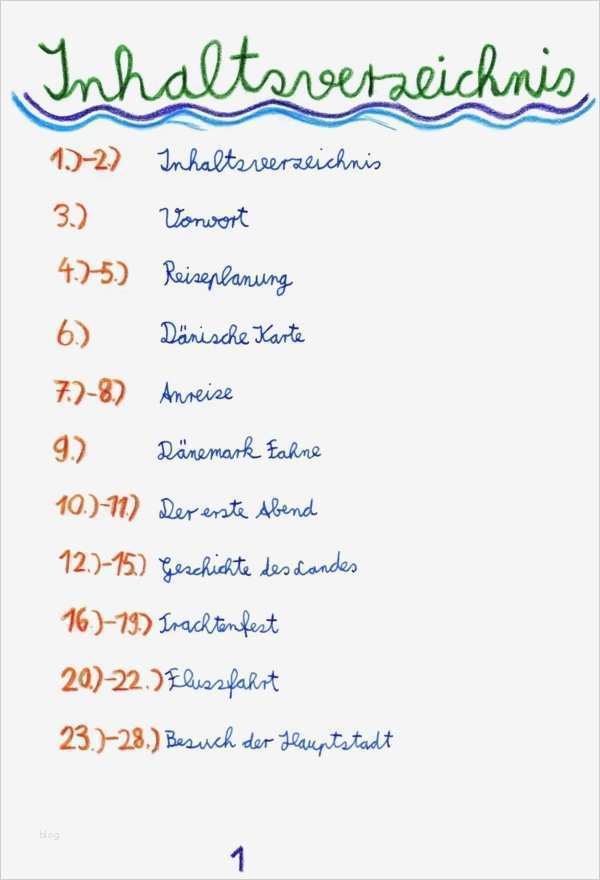 Inhaltsverzeichnis
1.)-2.) Inhaltsverzeichnis
3.) Vorwort
4.)-5.) Reiseplanung
6.) Dänische Karte
7.)-8.) Anreise
9.) Dänemark Fahne
10.)-11.) Der erste Abend
12.)-15.) Geschichte des Landes
16.)-19.) Trachtenfest
20.)-22.) Flussfahrt
23.)-28.) Besuch der Hauptstadt
blog
1